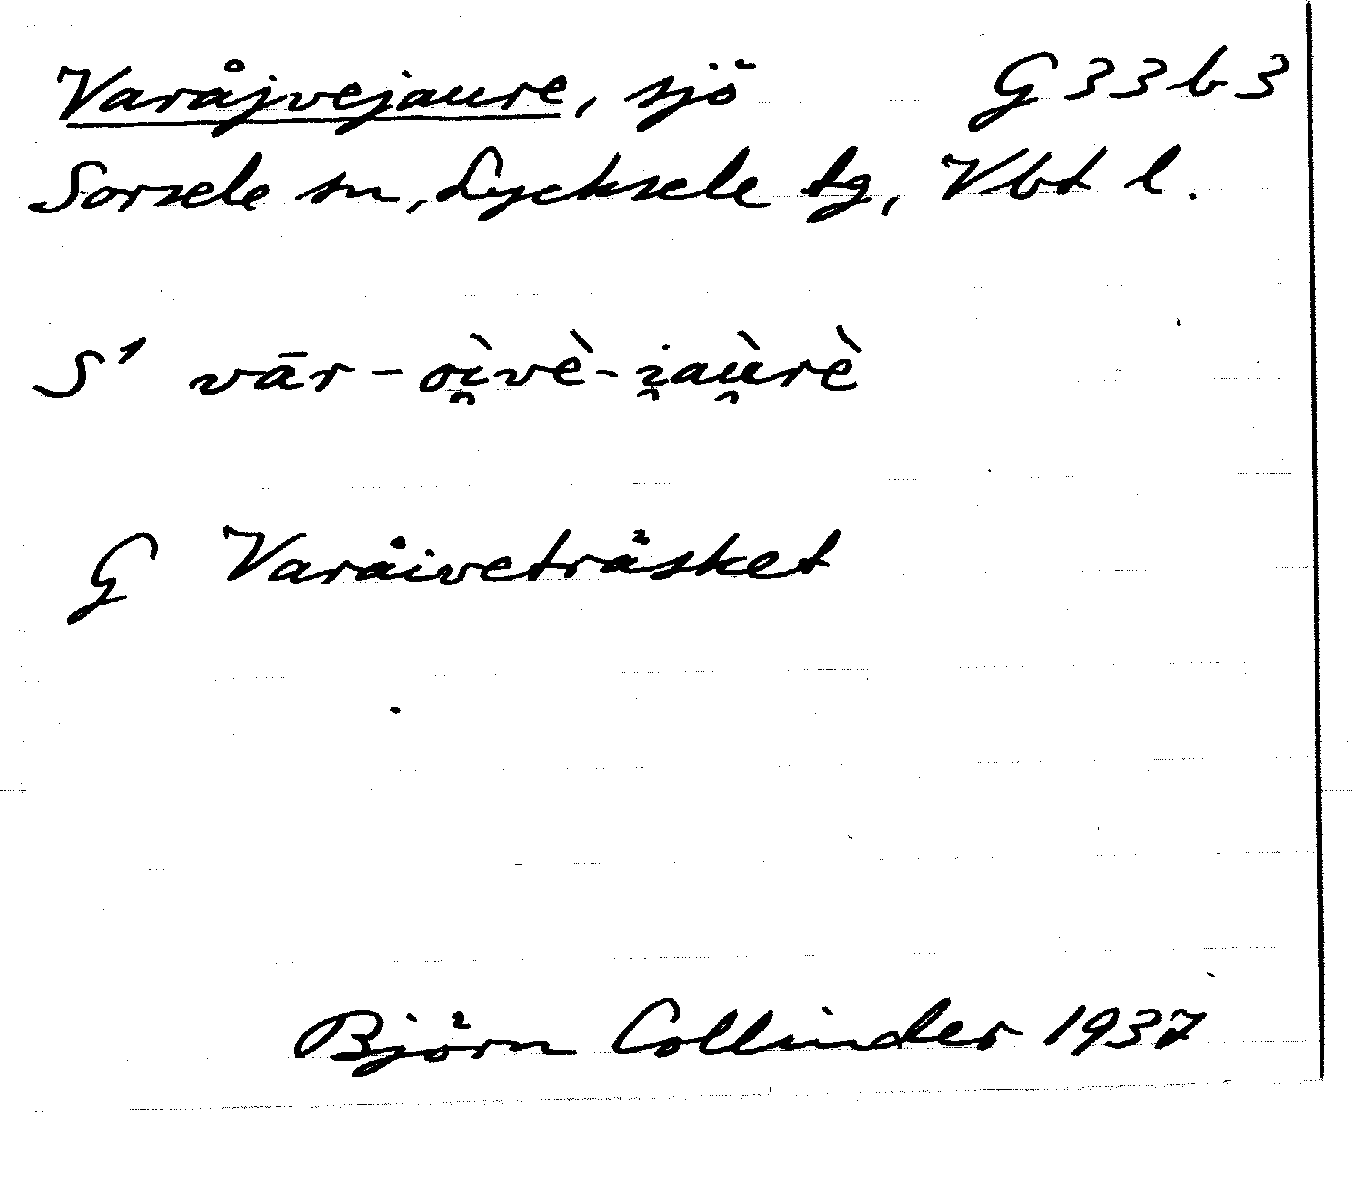 Varåjvejaure, sjö G 33 b 3
Sorsele sn, Lycksele tg, Vbt l.
S¹ vār - oì̯vè - i̯aù̯rè
G Varåiveträsket
Björn Collinder 1937